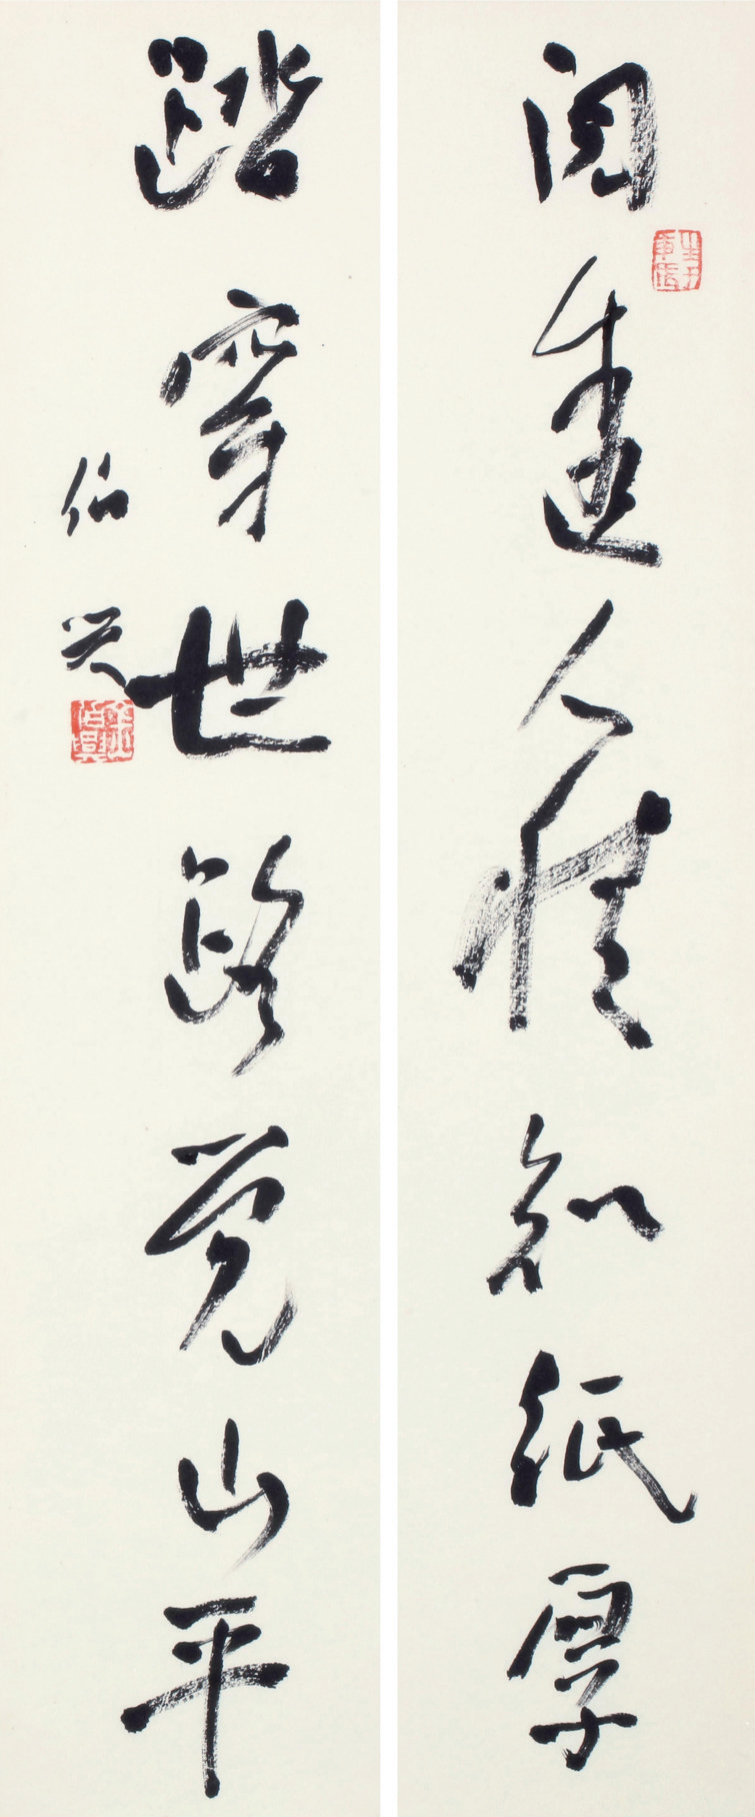 阅尽人情知纸厚
踏穿世路觉山平